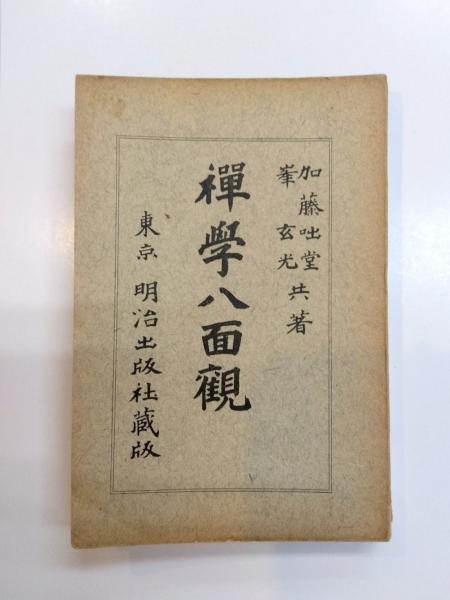 加藤咄堂
峯玄光 共著
禪學八面觀
東京 明治出版社蔵版